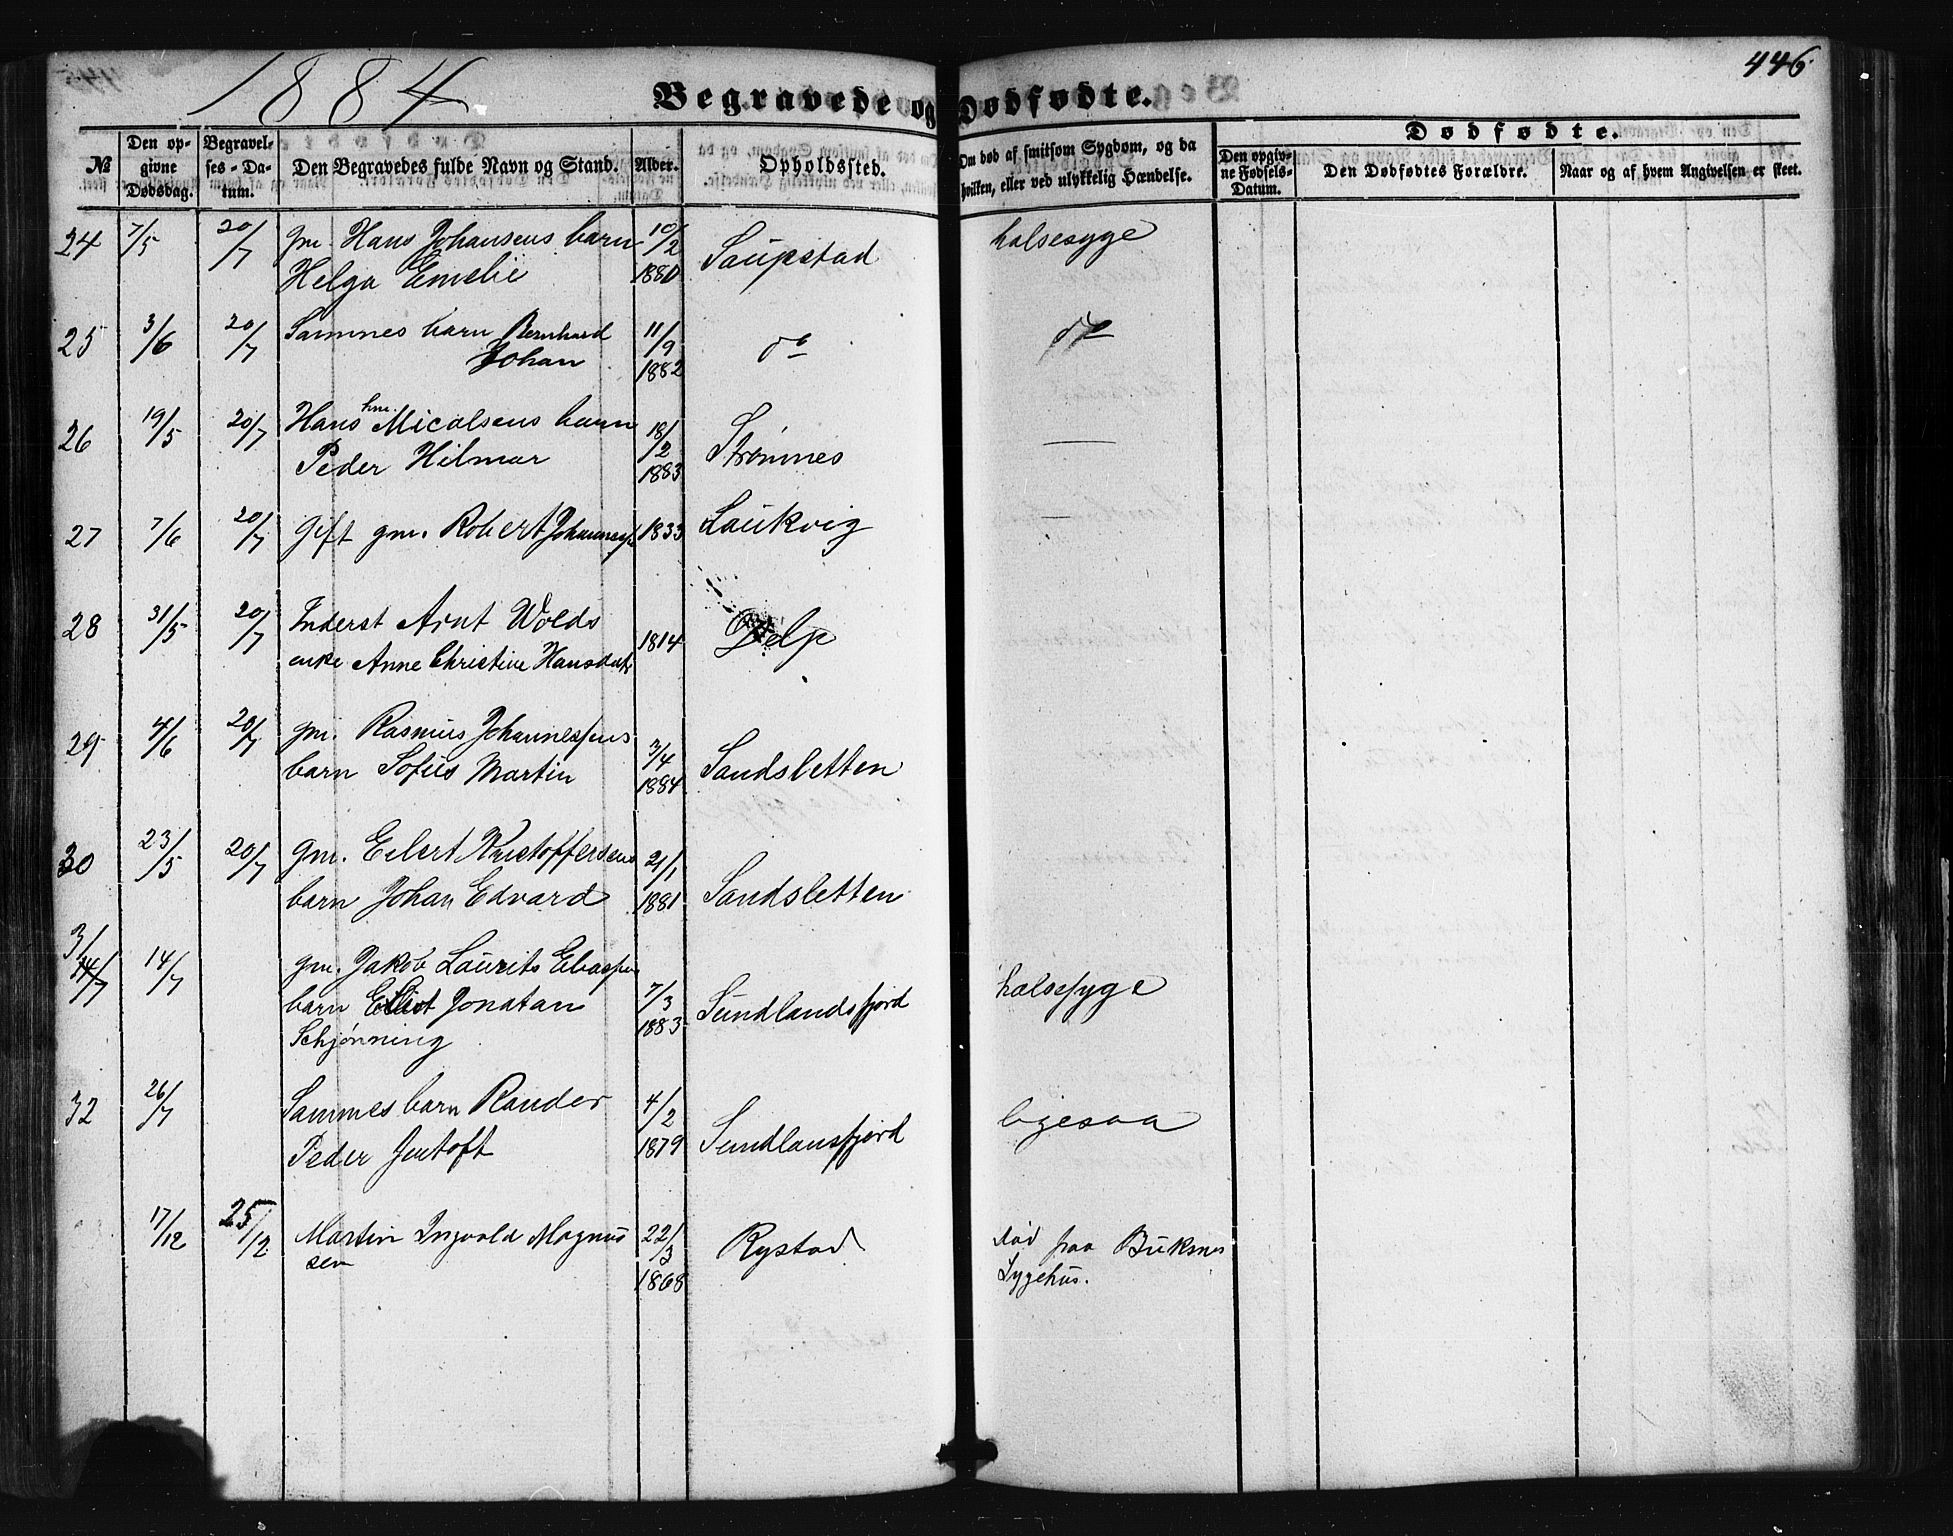 1884
446
Begravede og Dødfødte.
№
Den opgivne Dødsdag.
Begravelses-Datum.
Den Begravedes fulde Navn og Stand.
Alder.
Opholdssted.
Om død af smitsom Sygdom, og da hvilken, eller ved ulykkelig Hændelse.
Dødfødte.
Den opgivne Fødsels-Datum.
Den Dødfødtes Forældre.
Naar og af hvem Angivelsen er skeet.
24 7/5 20/7 gm. Hans Johansens barn 10/2 Saupstad halsesyge
Helga Emelie 1880
25 3/6 20/7 Sammes barn Bernhard 11/9 do do
Johan 1882
26 19/5 20/7 Hans hm. Micalsens barn 18/2 Strømnes —
Peder Hilmar 1883
27 7/6 20/7 Gift gm. Robert Johannes 1833 Laukvig —
28 31/5 20/7 Inderst Arnt Wolds 1814 Delp
enke Anne Christine Hansdatr
29 4/6 20/7 gm. Rasmus Johannessens 3/4 Sandsletten
barn Sofus Martin 1884
30 23/5 20/7 gm. Eilert Kristoffersens 21/1 Sandsletten
barn Johan Edvard 1881
31 14/7 14/7 gm. Jakob Laurits
barn Jonatan 7/3 Sundlandsfjord halsesyge
Schjønning 1883
32 26/7 Sammes barn Rander 4/2 Sundlansfjord ligesaa
Peder Jentoft 1879
17/12 25/12 Martin Ingvald Magnus 22/3 Rystad Død paa Buksnes
sen 1868 Sygehus.